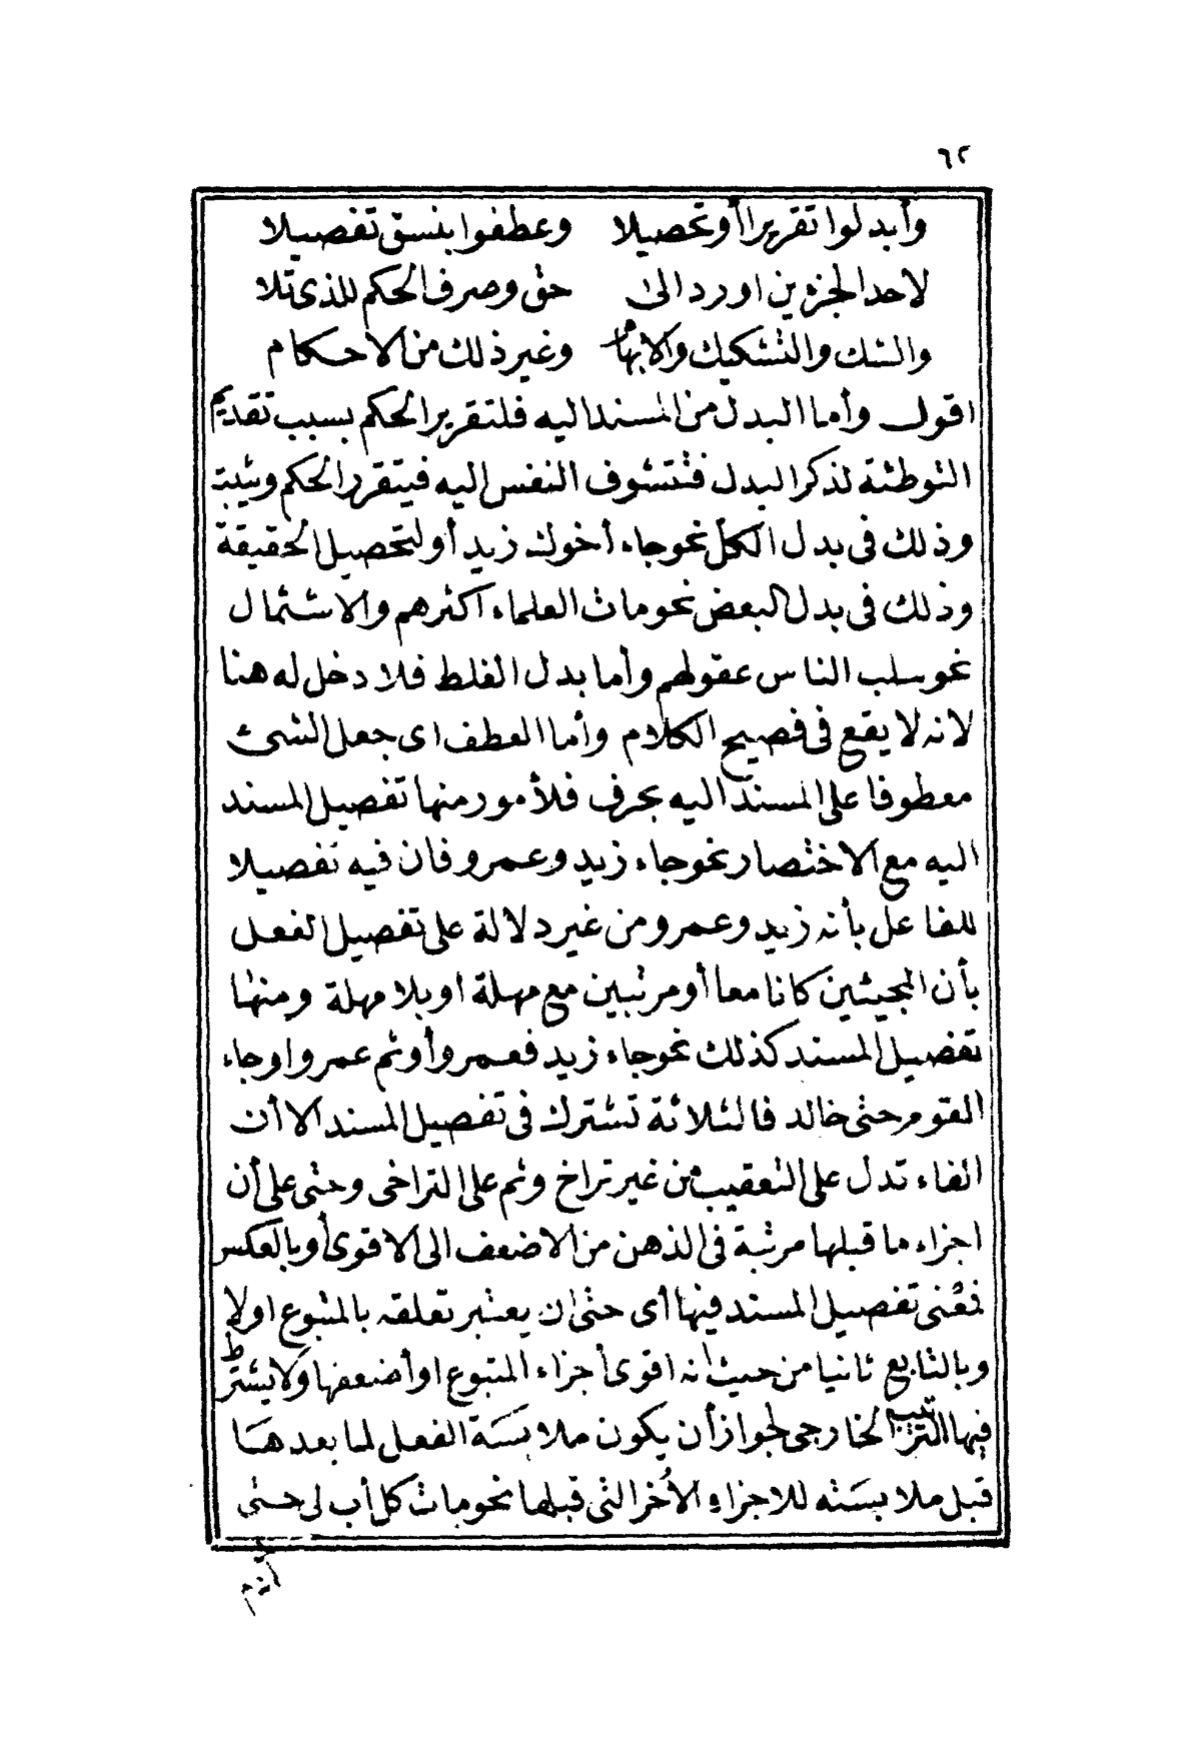 ٦٢
وأبدلوا تقريرا أو تحصيلا وعطفوا بنسق تفصيلا
لاحد الجزءين او رد الى حق وصرف الحكم للذى تلا
والشك والتشكيك والابهام وغير ذلك من الاحكام
اقول وأما البدل من المسند اليه فلتقرير الحكم بسبب تقديم
التوطئة لذكر البدل فتتشوف النفس اليه فيتقرر الحكم ويثبت
وذلك فى بدل الكل نحو جاء أخوك زيد أو لتحصيل الحقيقة
وذلك فى بدل البعض نحو مات العلماء أكثرهم والاشتمال
نحو سلب الناس عقولهم وأما بدل الغلط فلا دخل له هنا
لانه لا يقع فى فصيح الكلام وأما العطف اى جعل الشئ
معطوفا على المسند اليه بحرف فلأمور منها تفصيل المسند
اليه مع الاختصار نحو جاء زيد وعمرو فان فيه تفصيلا
للفاعل بأنه زيد وعمرو من غير دلالة على تفصيل الفعل
بأن المجيئين كانا معا أو مرتبين مع مهلة او بلا مهلة ومنها
تفصيل المسند كذلك نحو جاء زيد فعمرو أو ثم عمرو او جاء
القوم حتى خالد فالثلاثة تشترك فى تفصيل المسند الا أن
الفاء تدل على التعقيب من غير تراخ وثم على التراخى وحتى على أن
اجزاء ما قبلها مرتبة فى الذهن من الاضعف الى الاقوى أو بالعكس
فمعنى تفصيل المسند فيها أى حتى ان يعتبر تعلقه بالمتبوع اولا
وبالتابع ثانيا من حيث انه اقوى أجزاء المتبوع او أضعفها ولا يشترط
فيها الترتيب الخارجى لجواز أن يكون ملابسة الفعل لما بعدها
قبل ملابسته للاجزاء الأخر التى قبلها نحو مات كل أب لى حتى
آدم